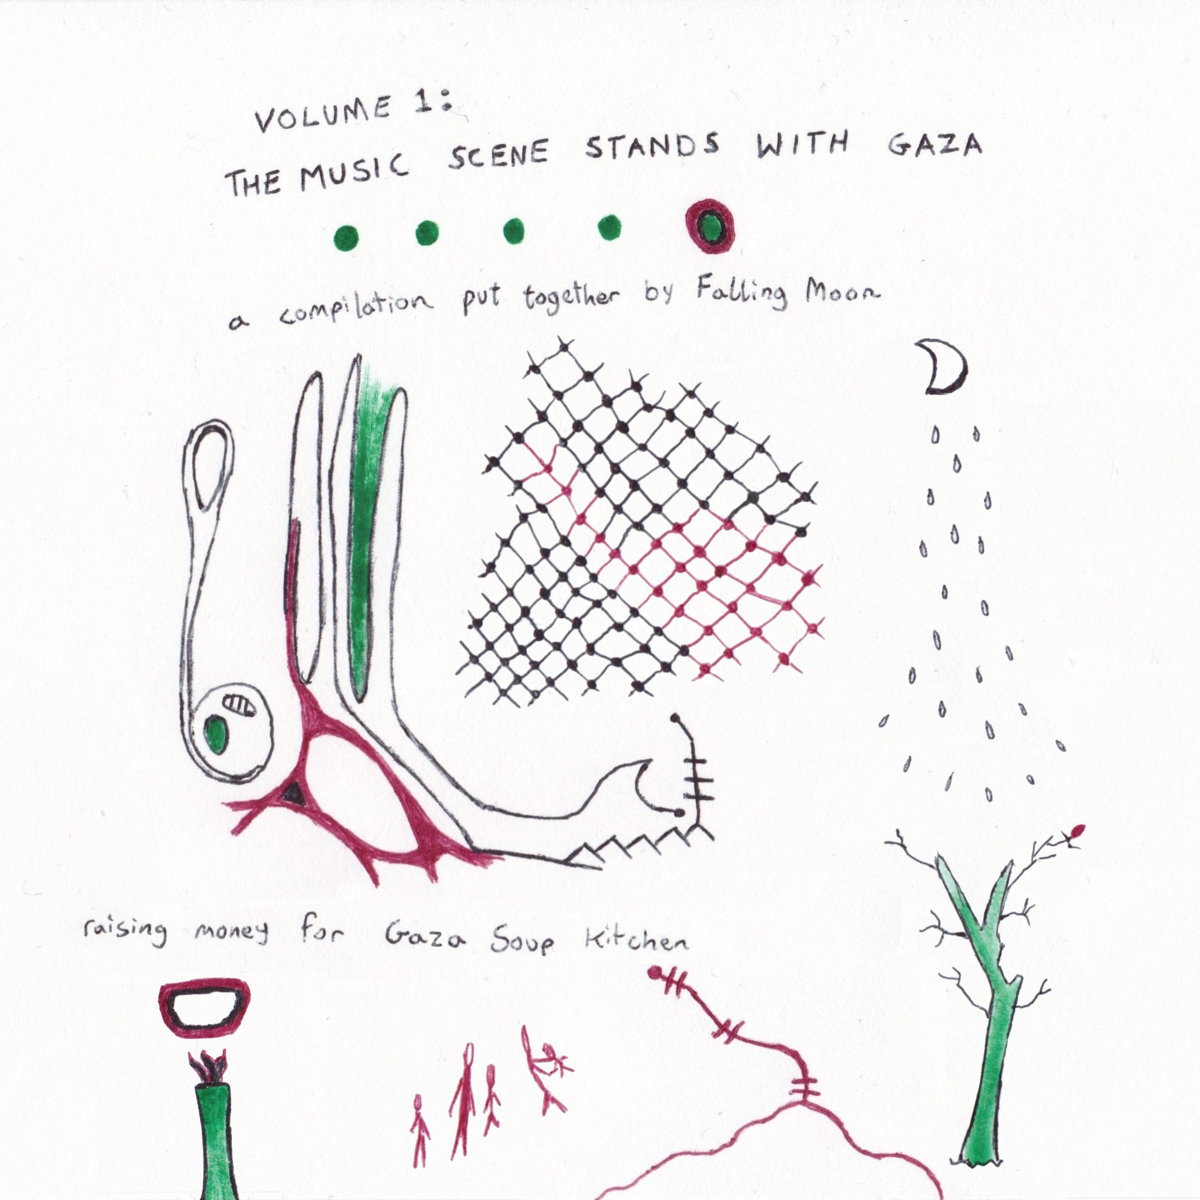 VOLUME 1:
THE MUSIC SCENE STANDS WITH GAZA
a compilation put together by Falling Moon
raising money for Gaza Soup Kitchen